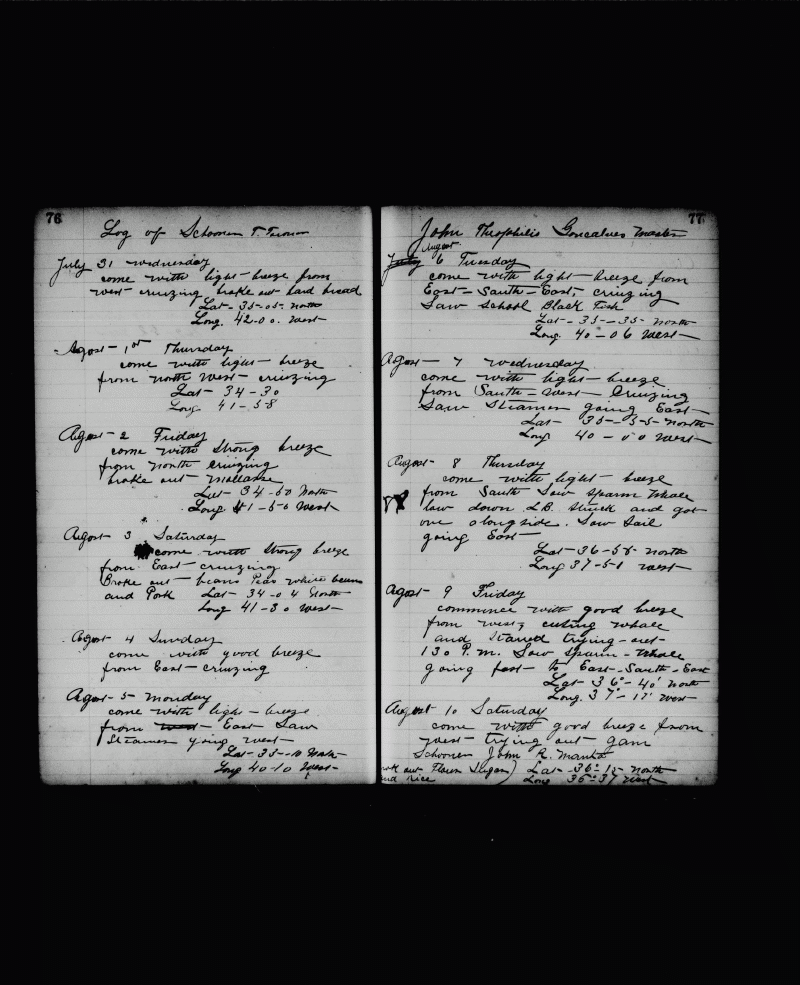 76
Log of Schooner T. Towner
July 31 wednesday
come with light breeze from
west cruizing brake out hard bread
Lat- 35-05- north
Long. 42-00. west
Agost- 1st Thursday
come with light- breeze
from north west- cruizing
Lat- 34-30
Long. 41-58
Agost- 2 Friday
come with strong breeze
from north cruizing
brake out mollasse
Lat- 34-50 North
Long 41-50 West
Agost- 3 Saturday
come with strong breeze
from East- cruizing
Broke out- beans Peas white beans
and Pork Lat- 34-04 North
Long 41-30 West-
Agost- 4 Sunday
come with good breeze
from East- cruizing
Agost- 5- monday
come with light- breeze
from west- East Saw
Steamer going west-
Lat- 35-10 North
Long 40-10 West-
77
John Theophilis Goncalves Master
August
July 6 Tuesday
come with light- breeze from
East- South- East, cruizing
Saw School Black Fish
Lat- 35-35- North
Long. 40-06 West-
Agost- 7 wednesday
come with light- breeze
from South- West- Cruizing
Saw Steamer going East-
Lat- 35-55- North
Long 40-00 West-
August- 8 Thursday
come with light- breeze
from South Saw Sparm Whale
low down L.B. Struck and got
one alongside. Saw Sail
going East-
Lat- 36-55- north
Long 37-51 west
Agost- 9 Friday
commince with good breeze
from west, cuting whale
and Stared trying-out-
130 P.M. Saw Sparm-Whale
going fast- to East-South-East
Lat- 36°-40' North
Long. 37°-17' West
August 10 Saturday
come with good breeze from
west- trying out gam
Schooner John R. Manta
out Flower Sugar) Lat- 36°-15- North
and rice Long 36°-37 West